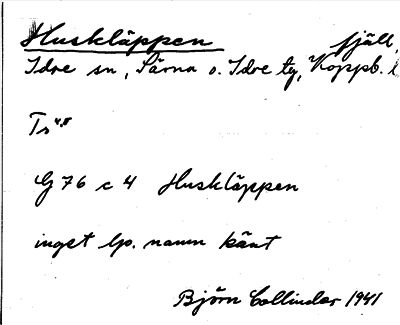 Huskläppen fjäll,
Idre sn, Särna o. Idre tg, Koppb. l
Ts
G 76 c 4 Huskläppen
inget lp. namn känt
Björn Collinder 1941